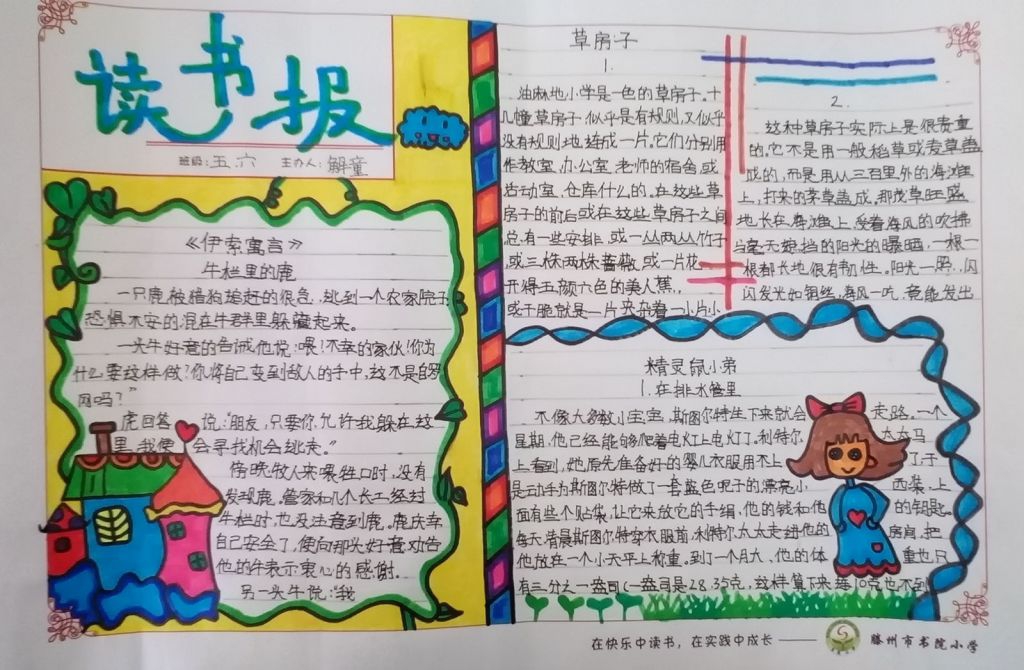 读书报
班级:五、六 主办人:解童
《伊索寓言》
牛栏里的鹿
一只鹿被猎狗追赶的很急,逃到一个农家院子
恐惧不安的混在牛群里躲藏起来。
一头牛好意的告诫他说:喂!不幸的家伙!你为
什么要这样做?你将自己交到敌人的手中,这不是自罗
网吗?”
鹿回答说:“朋友,只要你允许我躲在这
里,我便会寻找机会逃走。”
傍晚牧人来喂牲口时,没有
发现鹿。管家和几个长工经过
牛栏时,也没注意到鹿。鹿庆幸
自己安全了,便向那头好意劝告
他的牛表示衷心的感谢。
另一头牛说:“我
草房子
1.
油麻地小学是一色的草房子。十
几幢草房子,似乎是有规则,又似乎
没有规则地连成一片。它们分别用
作教室、办公室、老师的宿舍或
活动室、仓库什么的。在这些草
房子的前后或在这些草房子之间
总有一些安排,或一丛两丛竹子
或三株两株蔷薇,或一片花
开得五颜六色的美人蕉,
或干脆就是一片夹杂着一小片小
2.
这种草房子实际上是很贵重
的。它不是用一般稻草或麦草盖
成的,而是用从三百里外的海滩
上,打来的茅草盖成。那茂草旺盛
地长在海滩上,受着海风的吹拂
与毫无遮挡的阳光的曝晒,一根一
根都长地很有韧性。阳光一照,闪
闪发光如铜丝,海风一吹,竟能发出
精灵鼠小弟
1.在排水管里
不像大多数小宝宝,斯图尔特生下来就会走路。一个
星期,他已经能够爬着电灯上电灯了。利特尔太太马
上看到,她原先准备好的婴儿衣服用不上了,于
是动手为斯图尔特做了一套蓝色呢子的漂亮小西装,上
面有些个贴袋,让它来放它的手绢,他的钱和他的钥匙。
每天清晨斯图尔特穿衣服前,利特尔太太走进他的房间,把
他放在一个小天平上称重。到了一个月大,他的体重也只
有三分之一盎司(一盎司是28.35克,这样算下来连10克也不到
在快乐中读书,在实践中成长——滕州市书院小学